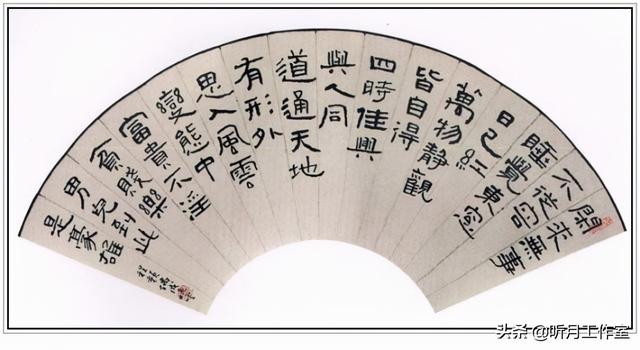 閒来無事
不從容
睡覺東窗
日已紅
萬物静觀
皆自得
四時佳興
與人同
道通天地
有形外
思入風雲
變態中
富貴不淫
貧賤樂
男兒到此
是豪雄
头条 @听月工作室